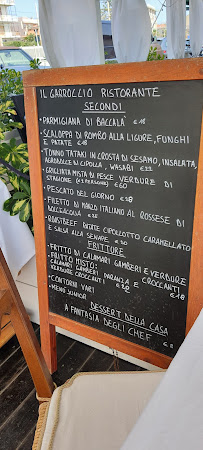 IL GARROCCIO RISTORANTE
SECONDI
• PARMIGIANA DI BACCALÀ €18
• SCALOPPA DI ROMBO ALLA LIGURE, FUNGHI
E PATATE €18
• TONNO TATAKI IN CROSTA DI SESAMO, INSALATA,
AGRODOLCE DI CIPOLLA, WASABI €22
• GRIGLIATA MISTA DI PESCE VERDURE DI
STAGIONE (2 PERSONE) €60
• PESCATO DEL GIORNO €28
• FILETTO DI MANZO ITALIANO AL ROSSESE DI
DOLCEACQUA €28
• ROASTBEEF PATATE CIPOLLOTTO CARAMELLATO
E SALSA ALLA SENAPE €20
FRITTURE
• FRITTO DI CALAMARI GAMBERI E VERDURE
• FRITTO MISTO:
CALAMARI GAMBERI PARANZA E CROCCANTI
VERDURE CROCCANTI €22 €18
• CONTORNI VARI
• MENÙ JUNIOR
DESSERT DELLA CASA
A FANTASIA DEGLI CHEF €8